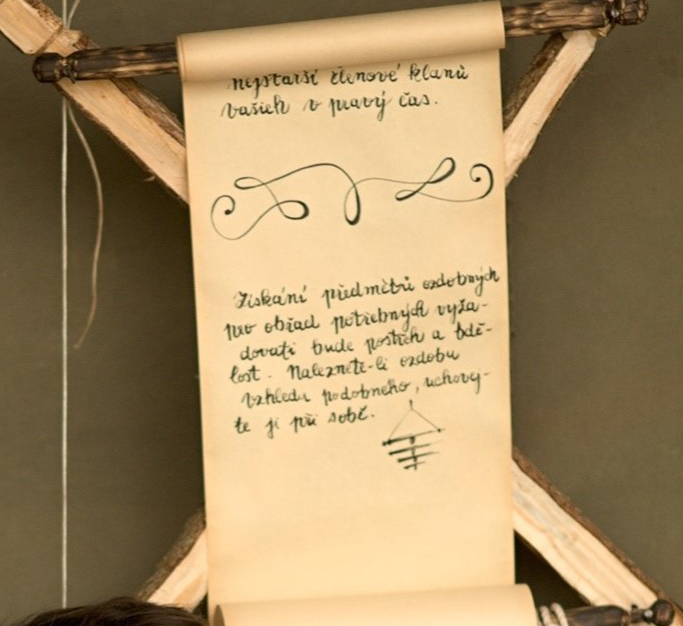 nejstarší členové klanů
vašich v pravý čas.
Získání předmětů ozdobných
pro obřad potřebných vyža-
dovati bude postřeh a bdě-
lost. Naleznete-li ozdobu
vzhledu podobného, uchovej-
te ji při sobě.